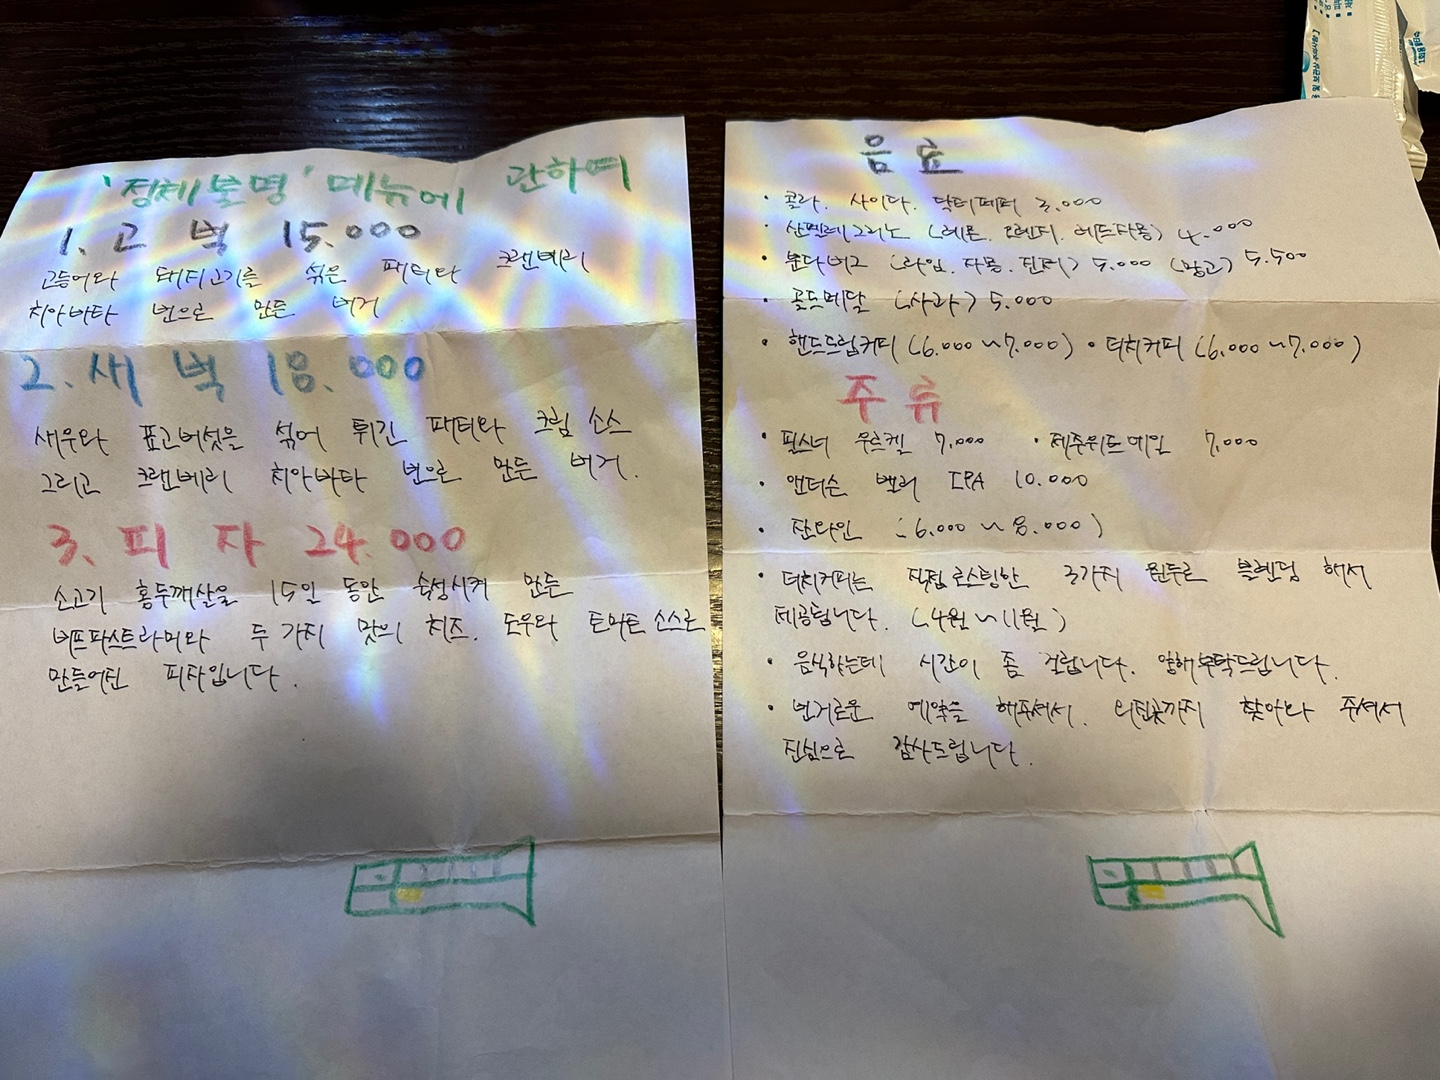 '정체불명' 메뉴에 관하여
1. 고 벅 15.000
고등어와 돼지고기를 섞은 패티와 크랜베리
치아바타 번으로 만든 버거
2. 새 벅 18.000
새우와 표고버섯을 섞어 튀긴 패티와 크림 소스
그리고 크랜베리 치아바타 번으로 만든 버거.
3. 피 자 24.000
소고기 홍두깨살을 15일 동안 숙성시켜 만든
비프파스트라미와 두 가지 맛의 치즈. 도우와 토마토 소스로
만들어진 피자입니다.
음 료
· 콜라. 사이다. 닥터페퍼 3.000
· 산펠레그리노 (레몬. 오렌지. 레드자몽) 4.000
· 분다버그 (라임. 자몽. 진저) 5.000 (망고) 5.500
· 골드메달 (사과) 5.000
· 핸드드립커피 (6.000~7.000) · 더치커피 (6.000~7.000)
주 류
· 필스너 우르켈 7.000 · 제주위트에일 7.000
· 앤더슨 밸리 IPA 10.000
· 잔와인 (6.000~8.000)
· 더치커피는 직접로스팅한 3가지 원두로 블렌딩 해서
제공됩니다. (4월~11월)
· 음식하는데 시간이 좀 걸립니다. 양해부탁드립니다.
· 번거로운 예약을 해주셔서. 외진곳까지 찾아와 주셔서
진심으로 감사드립니다.